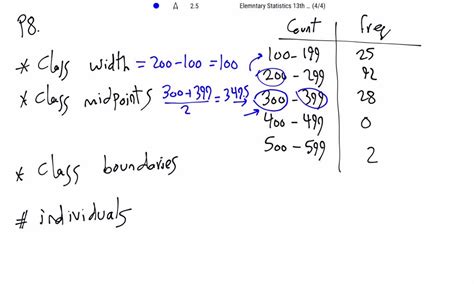 2.5 Elemntary Statistics 13th ... (4/4)
P8.
Count freq
* Class width = 200-100 = 100
* Class midpoints 300+399/2 = 349.5
100-199 25
200-299 92
300-399 28
400-499 0
500-599 2
* Class boundaries
# individuals